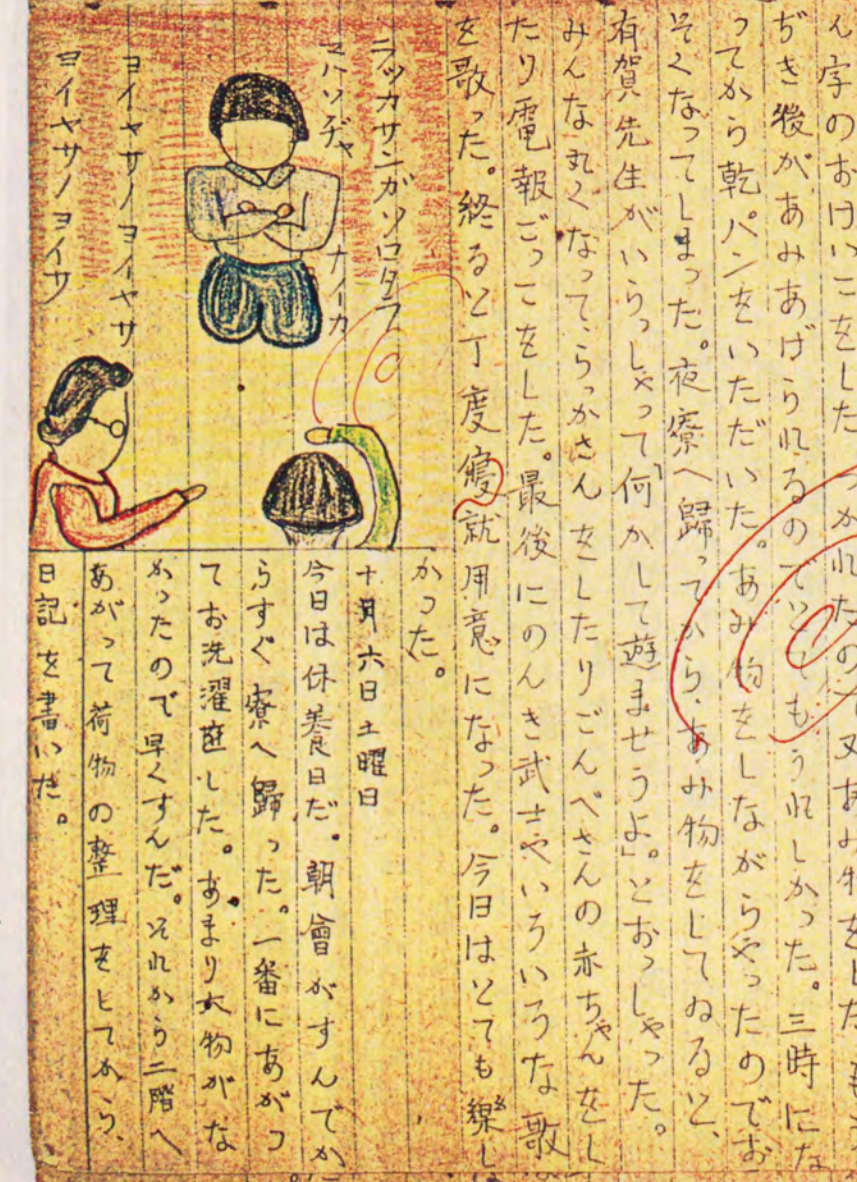 ん字のおけいこをした つかれたので又あみ物をした
ぢき後があみあげられるのでとてもうれしかった。三時にな
ってから乾パンをいただいた。あみ物をしながらやったのでお
そくなってしまった。夜寮へ歸ってから、あみ物をしてゐると、
有賀先生がいらっしゃって「何かして遊ませうよ」。とおっしゃった。
みんな丸くなって、らっかさんをしたりごんべさんの赤ちゃんをし
たり電報ごっこをした。最後にのんき武士やいろいろな歌
を歌った。終ると丁度寢就用意になった。今日はとても樂し
かった。
ラッカサンガソロタラ
マハソヂャ ナイーカ
ヨイヤサノヨイヤサ
ヨイヤサノヨイサ
十月六日土曜日
今日は休養日だ。朝會がすんでか
らすぐ寮へ歸った。一番にあがっ
てお洗濯した。あまり大物がな
かったので早くすんだ。それから二階へ
あがって荷物の整理をしてから、
日記を書いた。